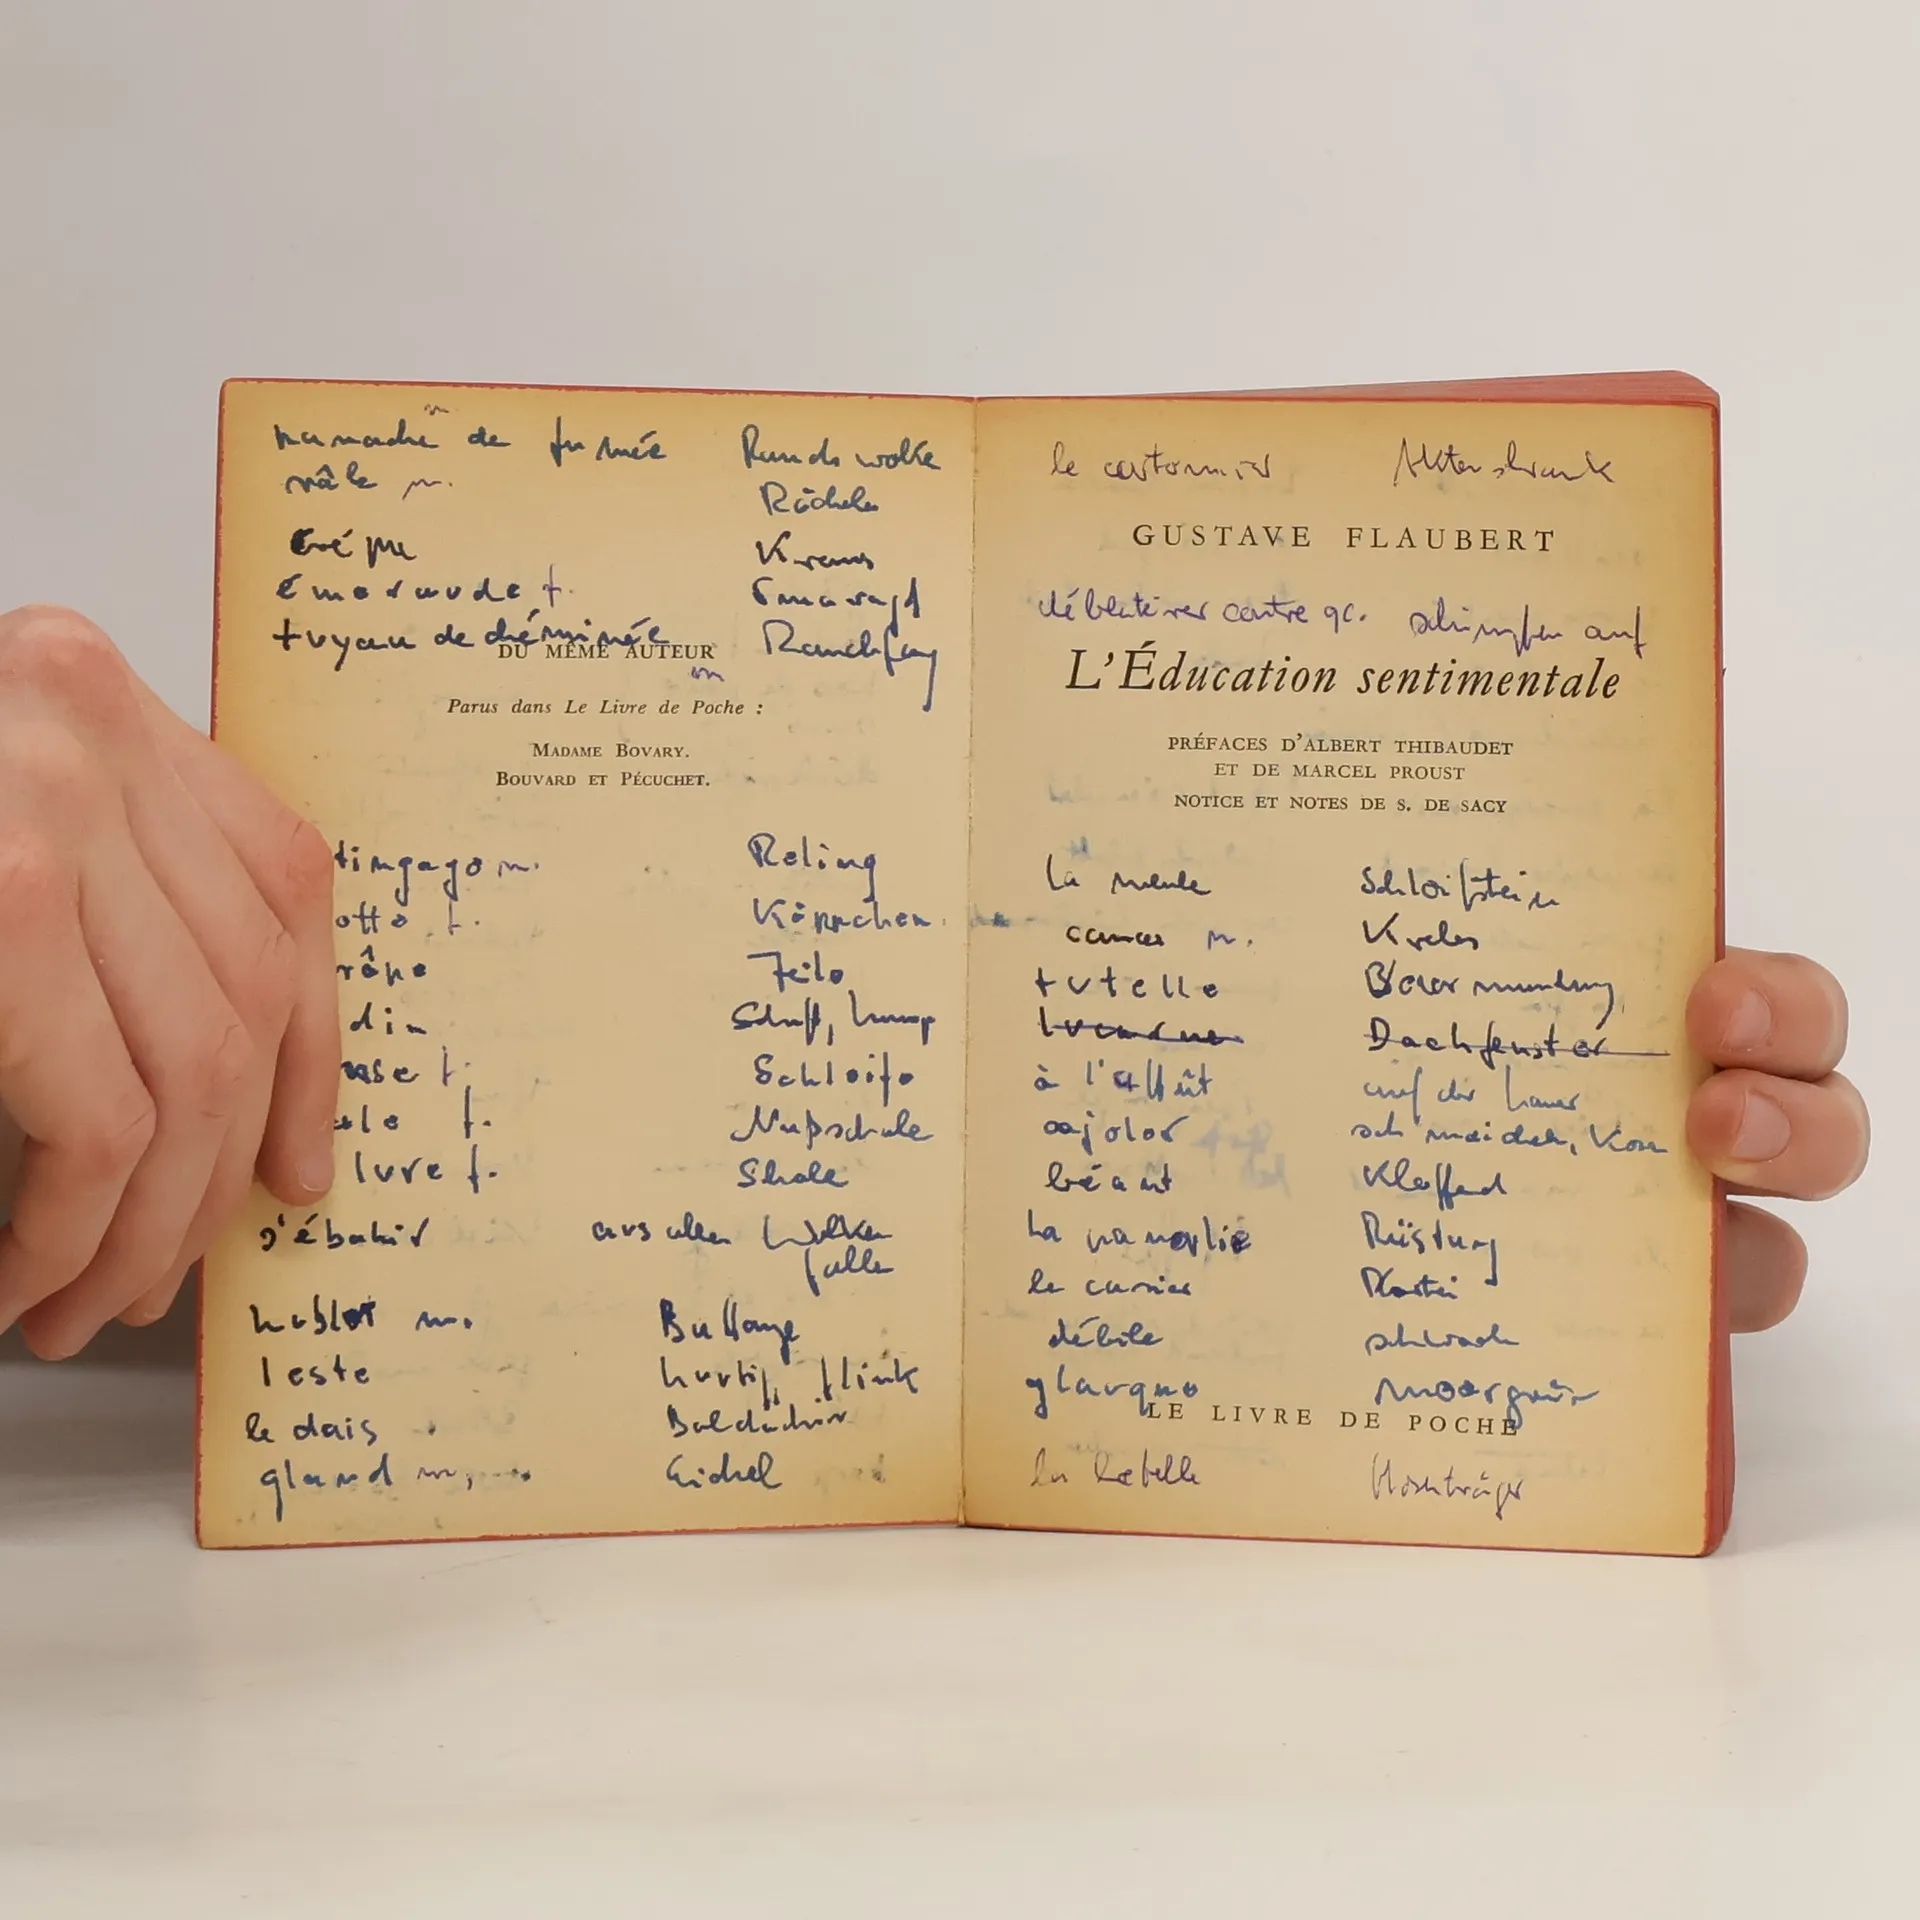 panache de fumée Rauchwolke
râle m. Röcheln
Kraus
émeraude f. Smaragd
tuyau de cheminée Rauchfang
m
DU MÊME AUTEUR
Parus dans Le Livre de Poche :
MADAME BOVARY.
BOUVARD ET PÉCUCHET.
tingage m. Reling
otte f. Käppchen
râpe Feile
din Schuft, Lump
use f. Schleife
ale f. Nußschale
lure f. Schale
s'ébahir aus allen Wolken
falle
hublot m. Bullauge
leste hurtig, flink
le dais Baldachin
gland m, Eichel
le cartonnier Aktenschrank
GUSTAVE FLAUBERT
déblatérer contre qc. schimpfen auf
L'Éducation sentimentale
PRÉFACES D'ALBERT THIBAUDET
ET DE MARCEL PROUST
NOTICE ET NOTES DE S. DE SACY
la meule Schleifstein
cancer m. Krebs
tutelle Bevormundung
lucarne Dachfenster
à l'affût auf der Lauer
cajoler schmeicheln, Kose
béant Klaffend
la panoplie Rüstung
le casier Kartei
débile schwach
glauque moorgrün
LE LIVRE DE POCHE
la bretelle Hosenträger